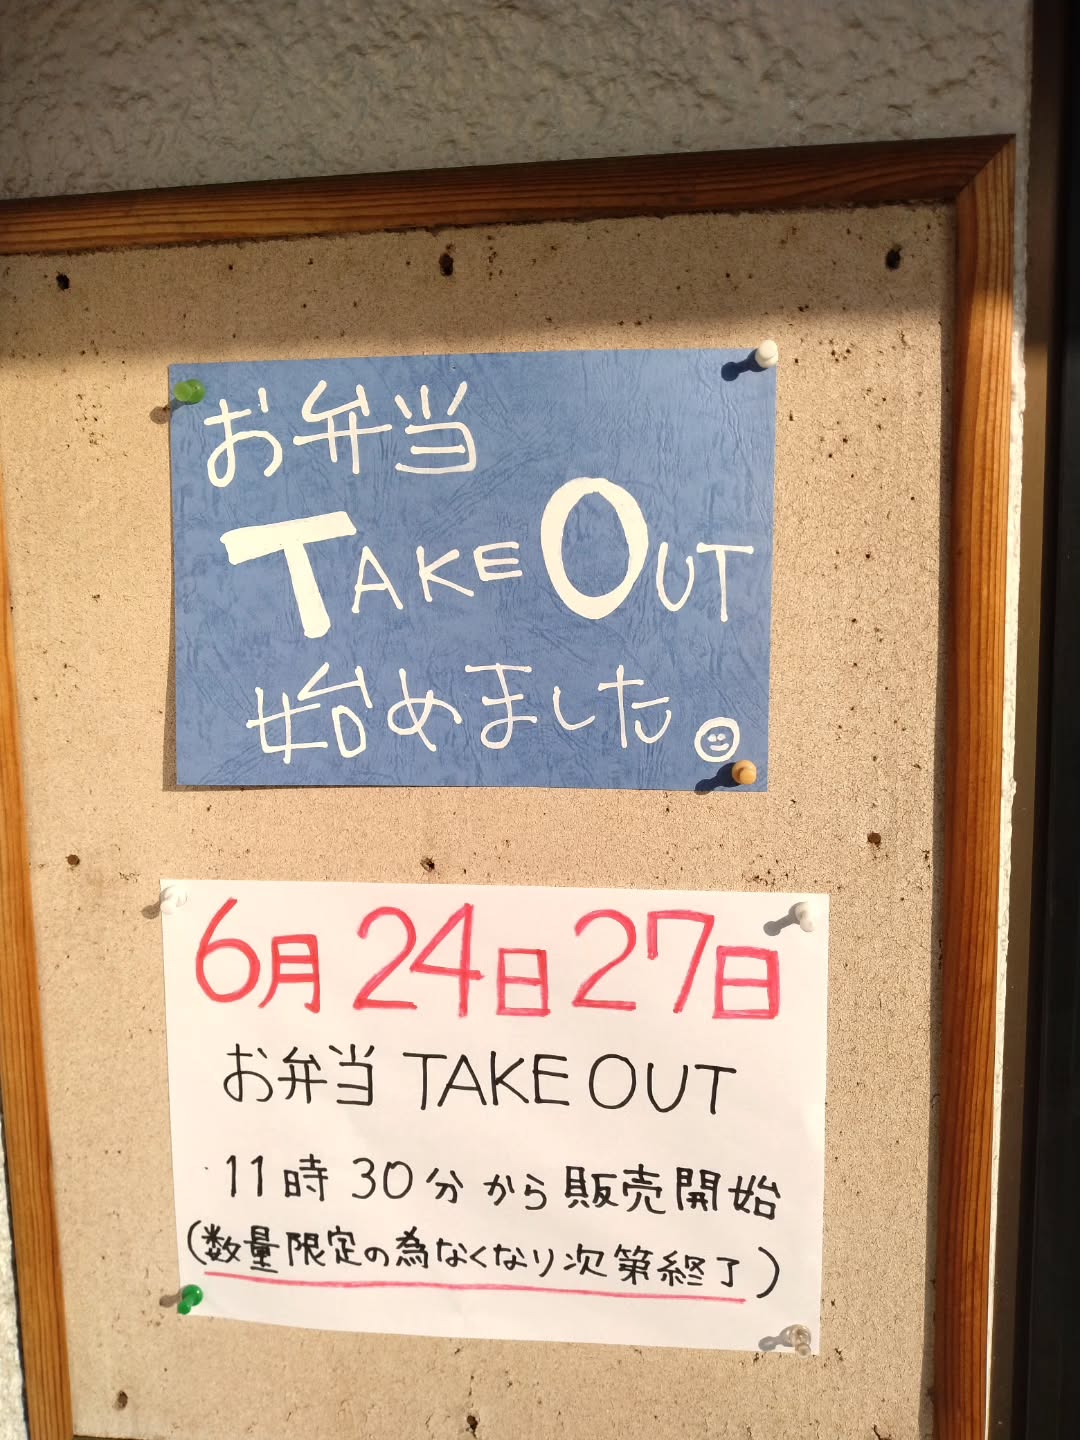 お弁当
TAKE OUT
始めました。
6月 24日 27日
お弁当 TAKE OUT
11時 30分 から 販売開始
(数量限定の為なくなり次第終了)